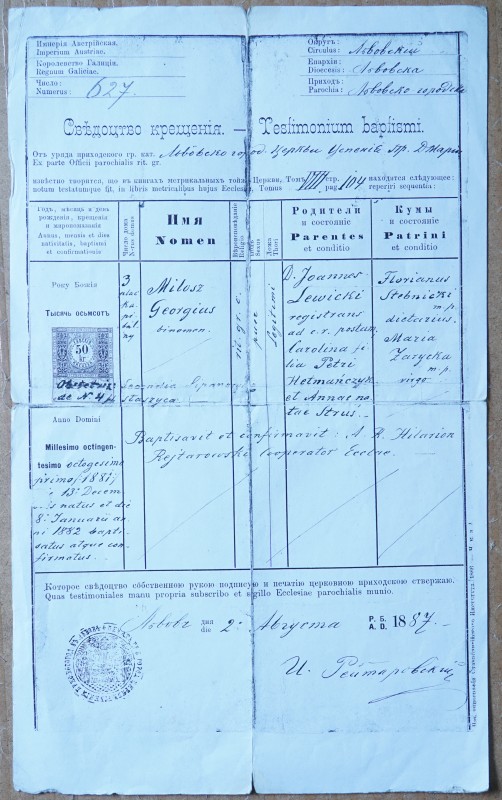 Имперія Австрійская.
Imperium Austriae.
Королевство Галиціи.
Regnum Galiciae.
Число:
Numerus: 627.
Округъ:
Circulus: Львовскій
Епархія:
Dioecesis: Львовска
Приходъ:
Parochia: Львовско городска
Свѣдоцтво крещенія. — Testimonium baptismi.
Отъ уряда приходского гр. кат. Львовско город. Церкви Успенія Пр. Д. Маріи
Ex parte Officii parochialis rit. gr.
извѣстно творится, що въ книгахъ метрикальныхъ тойже Церкви, Томъ VIII стр. 104 находится слѣдующее:
notum testatumque fit, in libris metricalibus hujus Ecclesiae, Tomus pag. reperiri sequentia:
Годъ, мѣсяцъ и день
рожденія, крещенія
и мѵропомазанія
Annus, mensis et dies
nativitatis, baptismi
et confirmationis
Число дома
N-rus domus
Имя
Nomen
Вѣроисповѣданіе
Religio
Полъ
Sexus
Ложа
Thori
Родители
и состояніе
Parentes
et conditio
Кумы
и состояніе
Patrini
et conditio
Року Божія
Тысячь осьмсотъ
50
3
Milosz
Georgius
binomen.
rit. gr. c.
puer
legitimi
D. Joannes
Lewicki
registrans
ad c. r. postam.
Carolina fi
lia Petri
Hetmańczyk
et Annae na
tae Strus.
Florianus
Stebnicki
m. p.
dietarius.
Maria
Zarycka
m. p.
virgo.
Obstetrix
de N. 4
Anno Domini
Millesimo octingen-
tesimo octogesimo
primo /1881/
13. Decem
natus et die
8. Januarii an
ni 1882 bapti
satus atque con
firmatus.
Baptisavit et confirmavit: A. R. Hilarion
Rejtarowski cooperator Eccl.
Которое свѣдоцтво собственною рукою подписую и печатію церковною приходскою отвержаю.
Quas testimoniales manu propria subscribo et sigillo Ecclesiae parochialis munio.
Львовъ дня
die 2. Августа Р. Б.
A. D. 1887.
И. Рейтаровскій